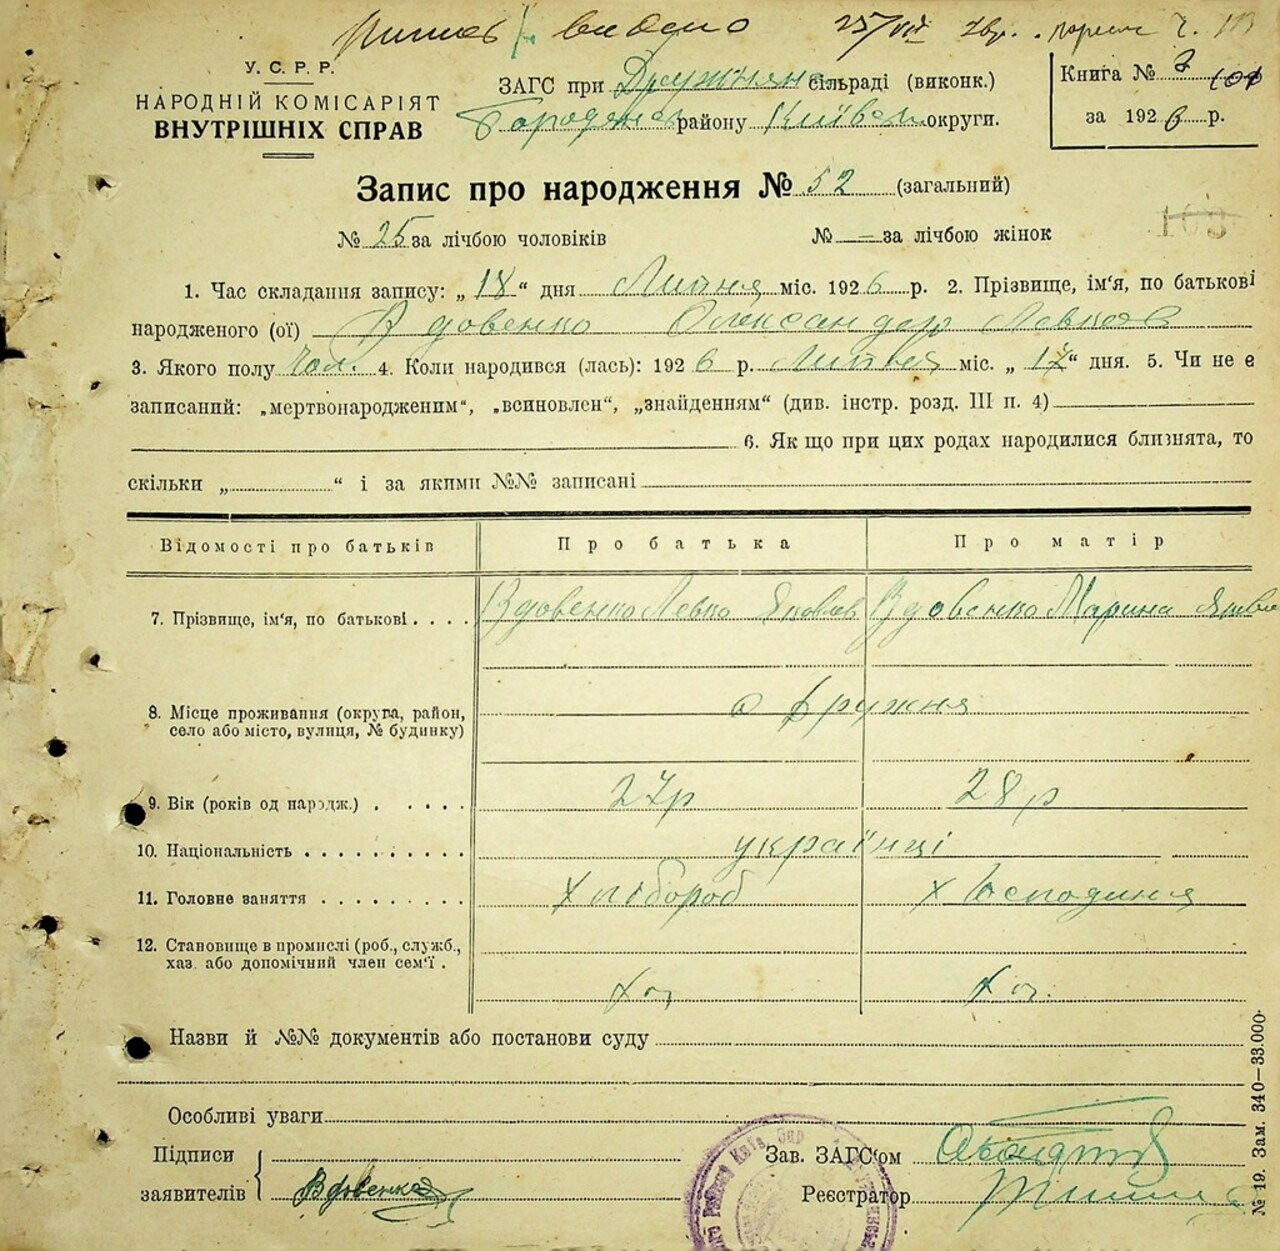 видано 25/VII
У. С. Р. Р.
НАРОДНІЙ КОМІСАРІЯТ
ВНУТРІШНІХ СПРАВ
ЗАГС при Дружнян сільраді (виконк.)
Бородян району Київськ округи.
Книга № 101
за 1926 р.
Запис про народження № 52 (загальний)
№ 25 за лічбою чоловіків № — за лічбою жінок
103
1. Час складання запису: „18“ дня Липня міс. 1926 р. 2. Прізвище, ім‘я, по батькові
народженого (ої) Вдовенко Олександор Левков
3. Якого полу чол. 4. Коли народився (лась): 1926 р. Липня міс. „17“ дня. 5. Чи не є
записаний: „мертвонародженим“, „всиновлен“, „знайденням“ (див. інстр. розд. III п. 4)
6. Як що при цих родах народилися близнята, то
скільки „ “ і за якими №№ записані
Відомості про батьків Про батька Про матір
7. Прізвище, ім‘я, по батькові . . . . Вдовенко Левко Яковів Вдовенко Марина
8. Місце проживання (округа, район,
село або місто, вулиця, № будинку)
с Дружня
9. Вік (років од народж.) . . . . . 27р 28р
10. Національність . . . . . . . . . . українці
11. Головне заняття . . . . . . . . . Хлібороб Господиня
12. Становище в промислі (роб., служб.,
хаз. або допомічний член сем‘ї .
Хоз Хоз.
Назви й №№ документів або постанови суду
Особливі уваги
Підписи
заявителів
Вдовенко
Зав. ЗАГС‘ом
Реєстратор
№ 19. Зам. 340—33.000